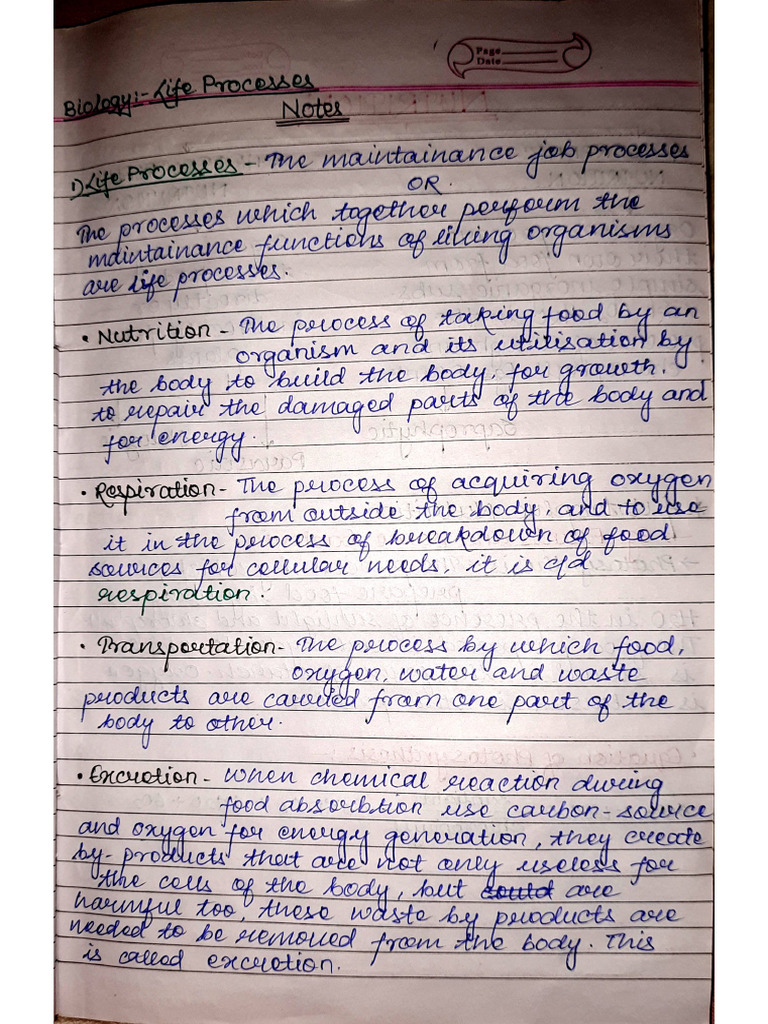 Page
Date
Biology:- Life Processes
Notes
1) Life Processes - The maintainance job processes
OR.
The processes which together perform the
maintainance functions of living organisms
are life processes.
• Nutrition - The process of taking food by an
organism and its utilisation by
the body to build the body, for growth,
to repair the damaged parts of the body and
for energy.
• Respiration - The process of acquiring oxygen
from outside the body, and to use
it in the process of breakdown of food
sources for cellular needs, it is c/d
respiration.
• Transportation - The process by which food,
oxygen, water and waste
products are carried from one part of the
body to other.
• Excretion - When chemical reaction during
food absorbtion use carbon-source
and oxygen for energy generation, they create
by-products that are not only useless for
the cells of the body, but could are
harmful too, these waste by products are
needed to be removed from the body. This
is called excretion.